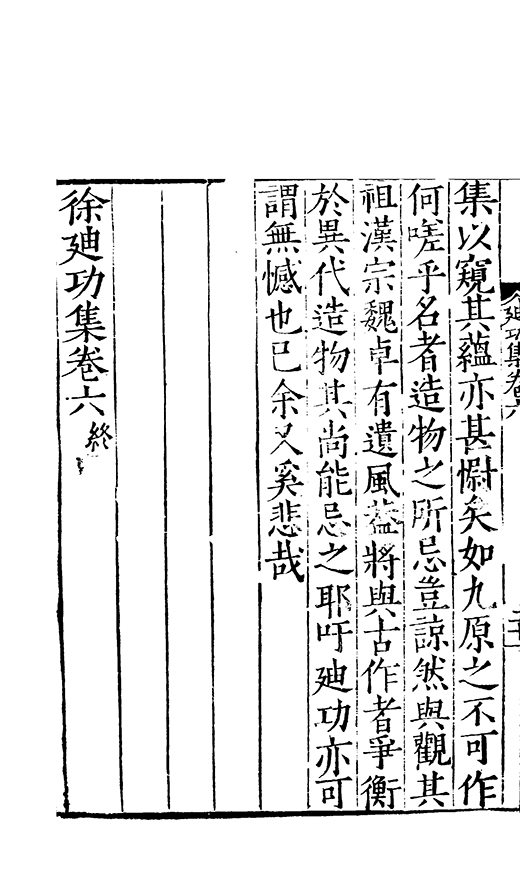 集以窺其蘊亦甚慰矣如九原之不可作
何嗟乎名者造物之所忌豈諒然與觀其
祖漢宗魏卓有遺風葢將與古作者爭衡
於異代造物其尚能忌之耶吁廸功亦可
謂無憾也已余又奚悲哉
徐廸功集卷六終
廸功集卷六